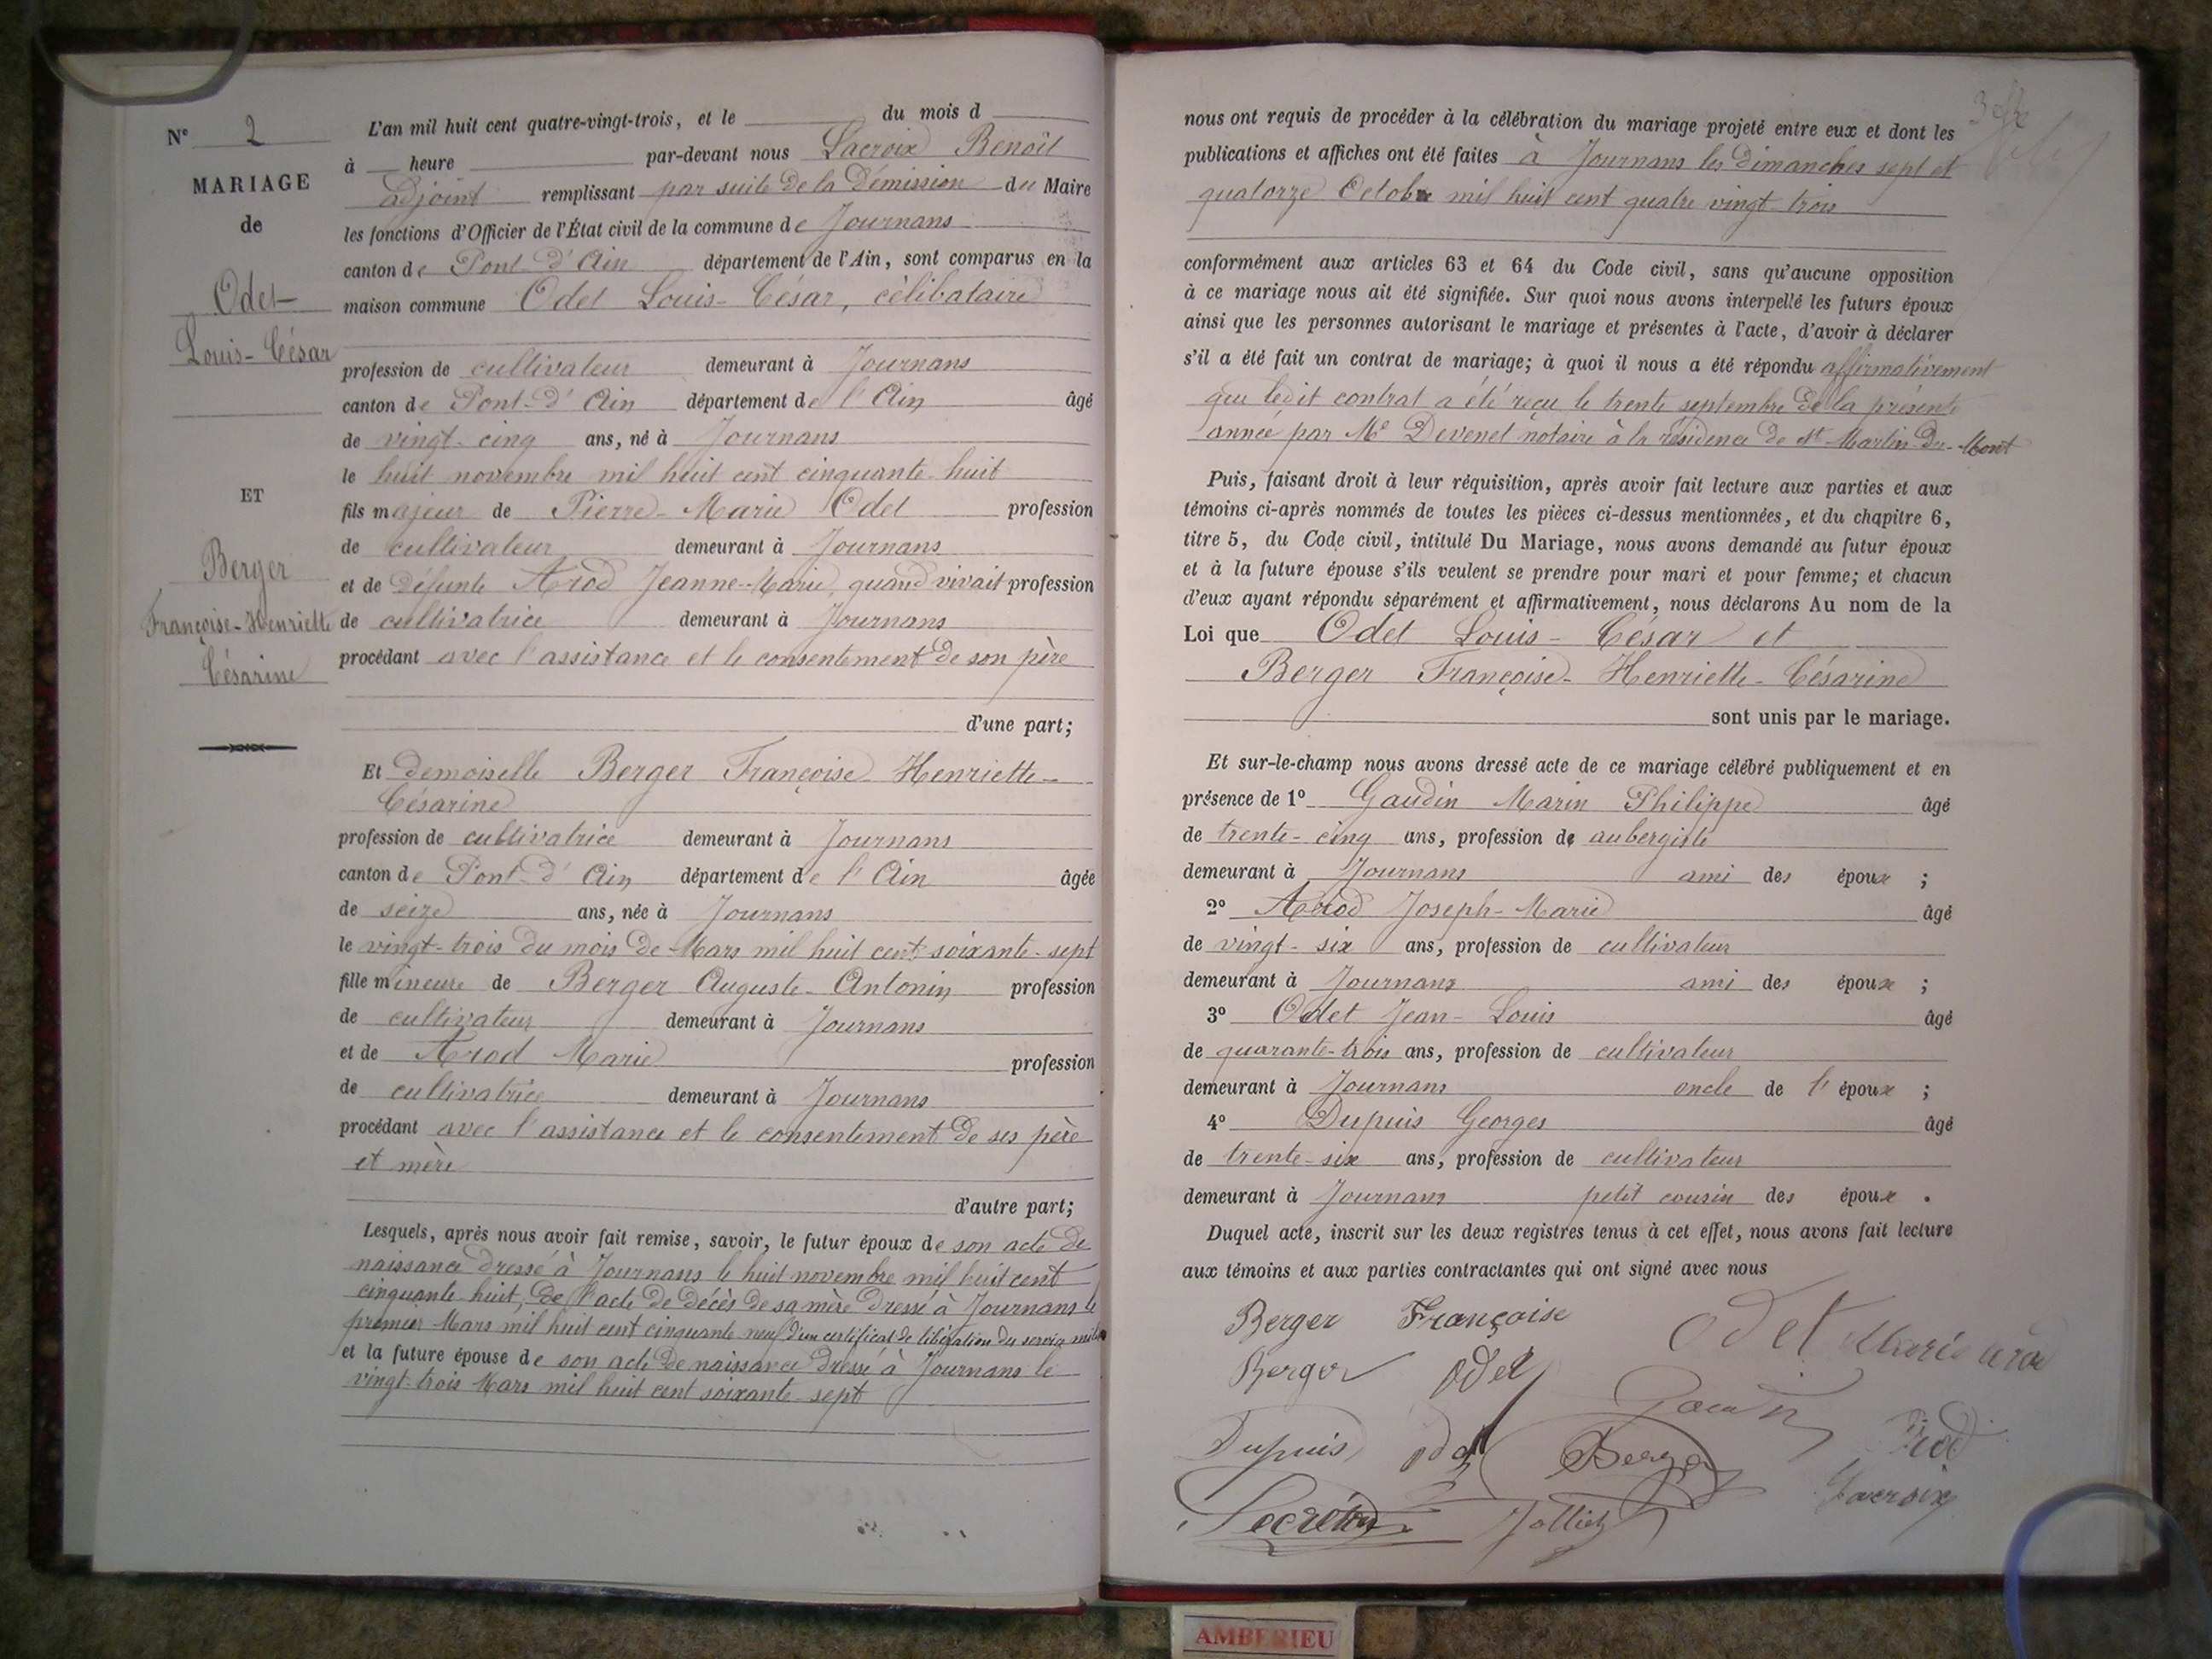 N° 2
MARIAGE
de
Odet
Louis-César
ET
Berger
Françoise-Henriette
Césarine
L'an mil huit cent quatre-vingt-trois, et le du mois d
à heure par-devant nous Lacroix Benoît
adjoint remplissant par suite de la Démission du Maire
les fonctions d'Officier de l'État civil de la commune de Journans
canton de Pont-d'Ain département de l'Ain, sont comparus en la
maison commune Odet Louis-César, célibataire
profession de cultivateur demeurant à Journans
canton de Pont-d'Ain département de l'Ain âgé
de vingt-cinq ans, né à Journans
le huit novembre mil huit cent cinquante-huit
fils majeur de Pierre-Marie Odet profession
de cultivateur demeurant à Journans
et de Défunte Arod Jeanne-Marie, quand vivait profession
de cultivatrice demeurant à Journans
procédant avec l'assistance et le consentement de son père
d'une part;
Et demoiselle Berger Françoise Henriette-
Césarine
profession de cultivatrice demeurant à Journans
canton de Pont-d'Ain département de l'Ain âgée
de seize ans, née à Journans
le vingt-trois du mois de Mars mil huit cent soixante-sept
fille mineure de Berger Auguste-Antonin profession
de cultivateur demeurant à Journans
et de Arod Marie profession
de cultivatrice demeurant à Journans
procédant avec l'assistance et le consentement de ses père
et mère
d'autre part;
Lesquels, après nous avoir fait remise, savoir, le futur époux de son acte de
naissance dressé à Journans le huit novembre mil huit cent
cinquante huit, de l'acte de décès de sa mère dressé à Journans le
premier Mars mil huit cent cinquante neuf d'un certificat de libération du service
et la future épouse de son acte de naissance dressé à Journans le
vingt-trois Mars mil huit cent soixante-sept
nous ont requis de procéder à la célébration du mariage projeté entre eux et dont les
publications et affiches ont été faites à Journans les Dimanches sept et
quatorze Octobre mil huit cent quatre vingt-trois
conformément aux articles 63 et 64 du Code civil, sans qu'aucune opposition
à ce mariage nous ait été signifiée. Sur quoi nous avons interpellé les futurs époux
ainsi que les personnes autorisant le mariage et présentes à l'acte, d'avoir à déclarer
s'il a été fait un contrat de mariage; à quoi il nous a été répondu affirmativement
que ledit contrat a été reçu le trente septembre de la présente
année par Me Devenet notaire à la résidence de St Martin-du-Mont
Puis, faisant droit à leur réquisition, après avoir fait lecture aux parties et aux
témoins ci-après nommés de toutes les pièces ci-dessus mentionnées, et du chapitre 6,
titre 5, du Code civil, intitulé Du Mariage, nous avons demandé au futur époux
et à la future épouse s'ils veulent se prendre pour mari et pour femme; et chacun
d'eux ayant répondu séparément et affirmativement, nous déclarons Au nom de la
Loi que Odet Louis-César et
Berger Françoise-Henriette-Césarine
sont unis par le mariage.
Et sur-le-champ nous avons dressé acte de ce mariage célébré publiquement et en
présence de 1° Gaudin Marin Philippe âgé
de trente-cinq ans, profession de aubergiste
demeurant à Journans ami des époux ;
2° Arod Joseph-Marie âgé
de vingt-six ans, profession de cultivateur
demeurant à Journans ami des époux ;
3° Odet Jean-Louis âgé
de quarante-trois ans, profession de cultivateur
demeurant à Journans oncle de l'époux ;
4° Dupuis Georges âgé
de trente-six ans, profession de cultivateur
demeurant à Journans petit cousin des époux .
Duquel acte, inscrit sur les deux registres tenus à cet effet, nous avons fait lecture
aux témoins et aux parties contractantes qui ont signé avec nous
Berger Françoise Odet Marie
Berger Odet
Dupuis Odet Berger
Lacroix
AMBERIEU